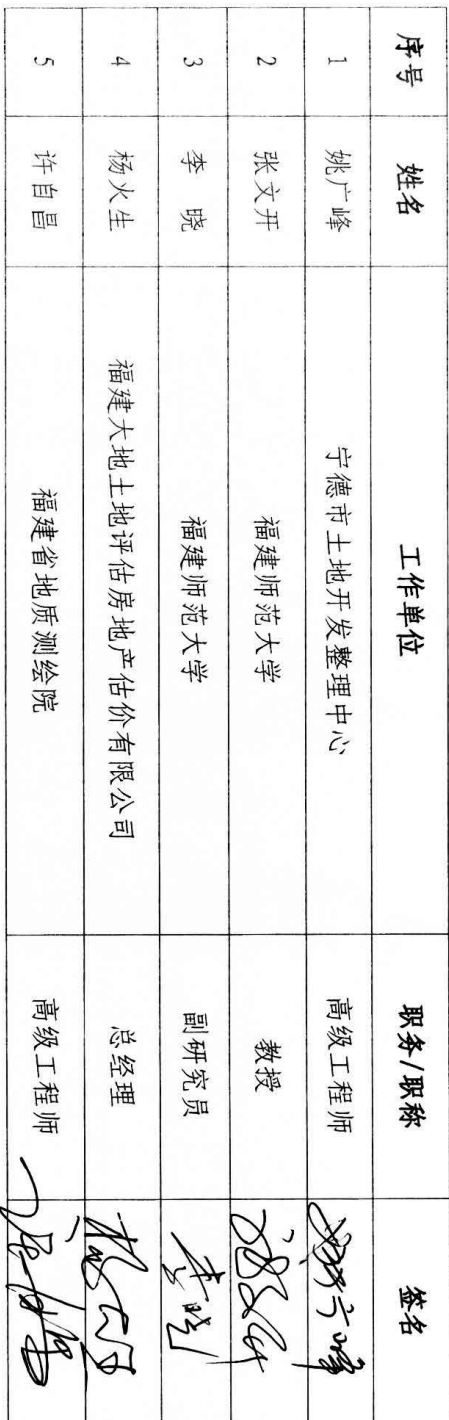 序号 姓名 工作单位 职务/职称 签名
1 姚广峰 宁德市土地开发整理中心 高级工程师
2 张文开 福建师范大学 教授
3 李晓 福建师范大学 副研究员 李晓
4 杨火生 福建大地土地评估房地产估价有限公司 总经理
5 许自昌 福建省地质测绘院 高级工程师